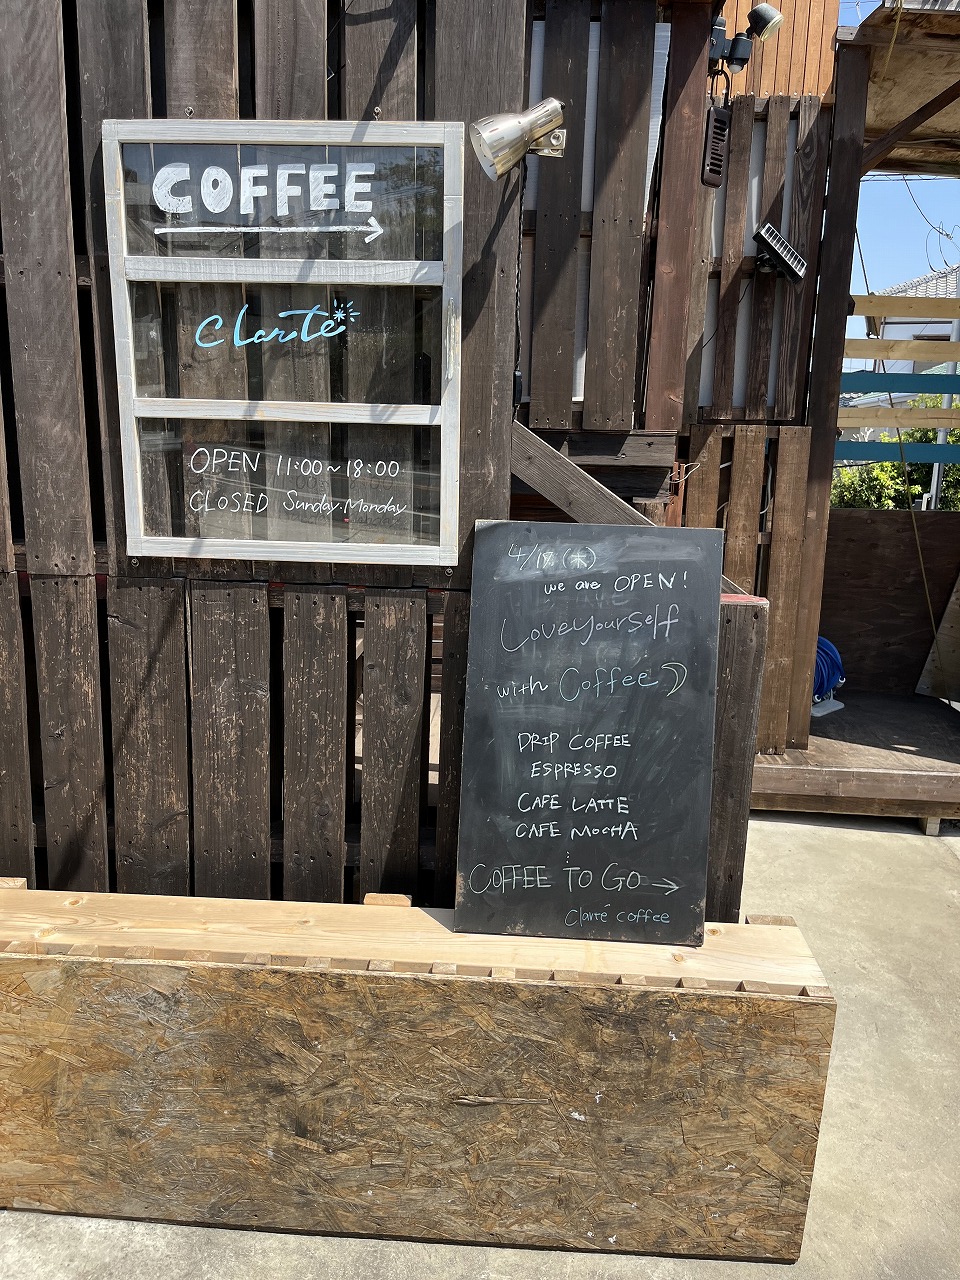 COFFEE
Clarté
OPEN 11:00~18:00
CLOSED Sunday.Monday
4/18 (木)
we are OPEN!
Love yourself
with Coffee
DRIP COFFEE
ESPRESSO
CAFE LATTE
CAFE MOCHA
COFFEE TO GO →
Clarté coffee